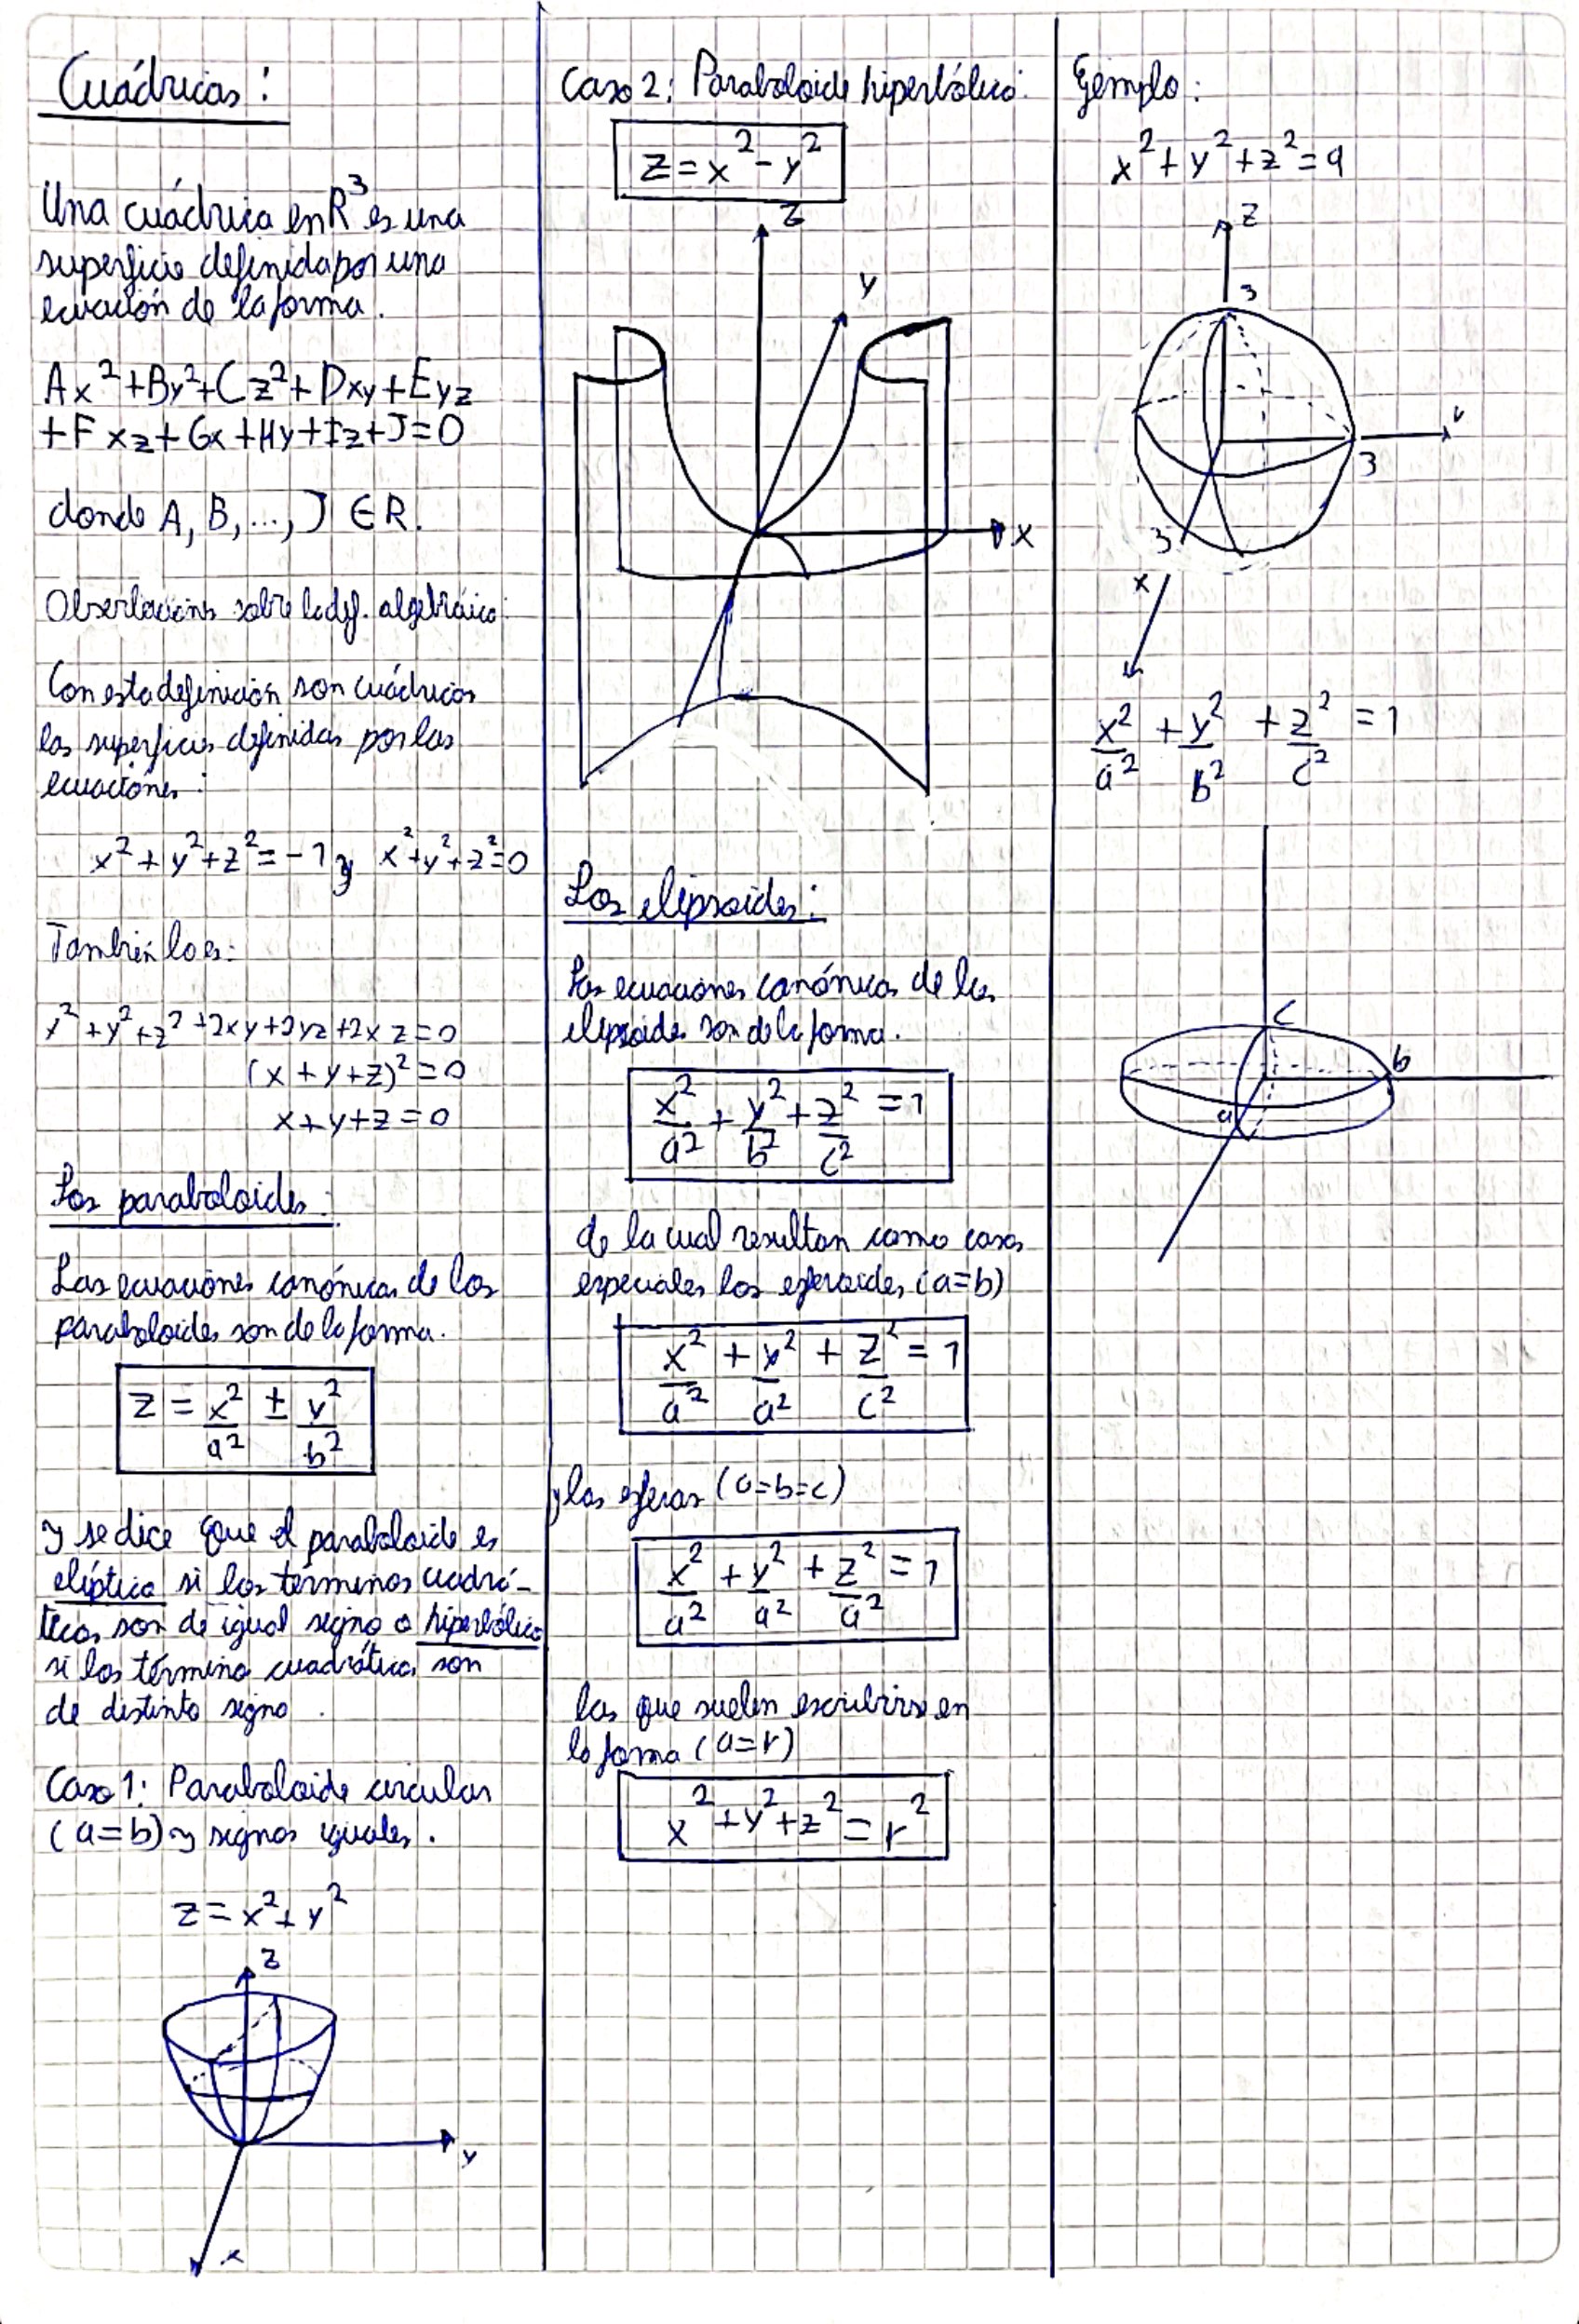 Cuádricas:
Una cuádrica en R³ es una
superficie definida por una
ecuación de la forma.
Ax² + By² + Cz² + Dxy + Eyz
+ Fxz + Gx + Hy + Iz + J = 0
donde A, B, ..., J ∈ R.
Observación sobre la def. algebraica:
Con esta definición son cuádricas
las superficies definidas por las
ecuaciónes:
x² + y² + z² = -1 y x² + y² + z² = 0
También lo es:
x² + y² + z² + 2xy + 2yz + 2xz = 0
(x + y + z)² = 0
x + y + z = 0
Los paraboloides:
Las ecuaciónes canónicas de los
paraboloides son de la forma.
z = x²/a² ± y²/b²
y se dice que el paraboloide es
elíptico si los términos cuadrá-
ticos son de igual signo o hiperbólico
si los término cuadráticos son
de distinto signo.
Caso 1: Paraboloide circular
(a=b) y signos iguales.
z = x² + y²
z
y
x
Caso 2: Paraboloide hiperbólico:
z = x² - y²
z
y
x
Los elipsoides:
Las ecuaciónes canónicas de los
elipsoides son de la forma.
x²/a² + y²/b² + z²/c² = 1
de la cual resultan como casos
especiales los esferoides (a=b)
x²/a² + y²/a² + z²/c² = 1
y las esferas (a=b=c)
x²/a² + y²/a² + z²/a² = 1
las que suelen escribirse en
la forma (a=r)
x² + y² + z² = r²
Ejemplo:
x² + y² + z² = 9
z
3
y
3
3
x
x²/a² + y²/b² + z²/c² = 1
c
b
a